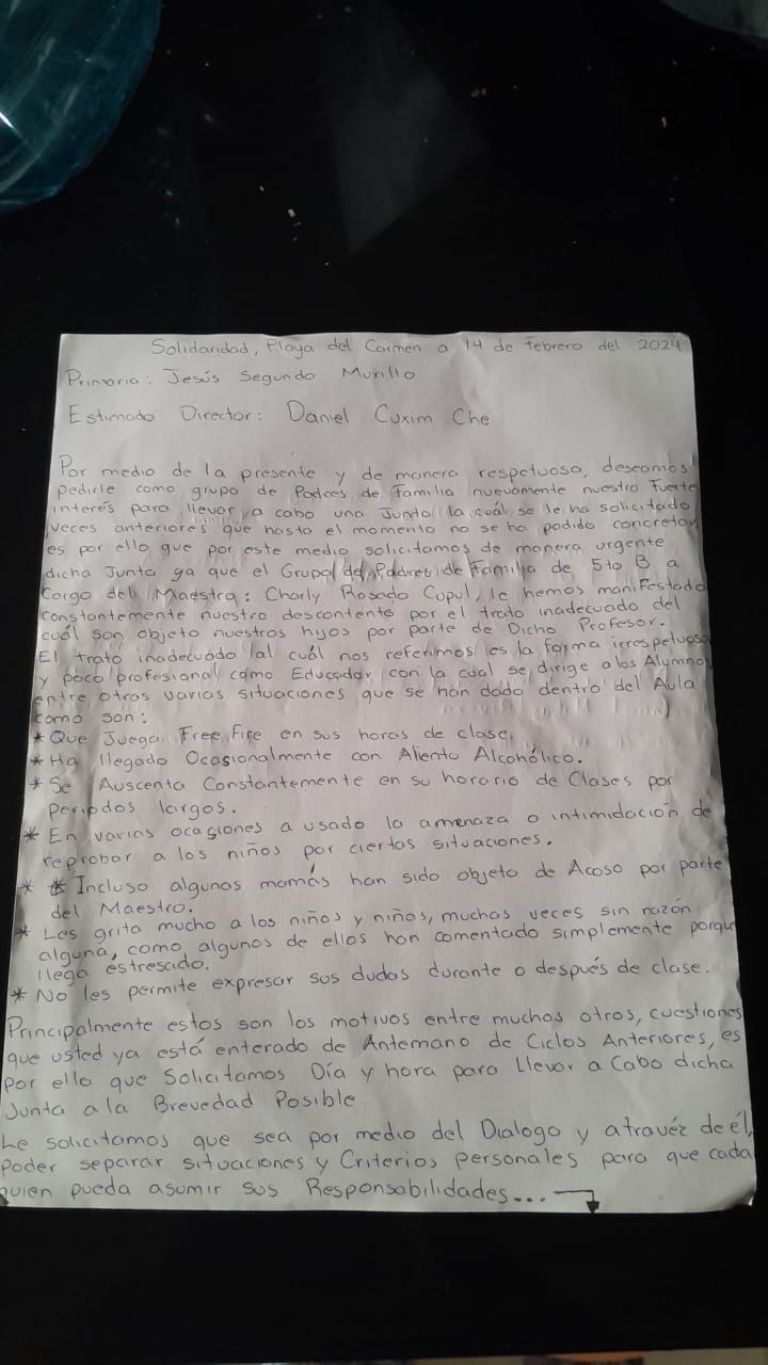 Solidaridad, Playa del Carmen a 14 de febrero del 2024
Primaria: Jesús Segundo Murillo
Estimado Director: Daniel Cuxim Che
Por medio de la presente y de manera respetuosa, deseamos
pedirle como grupo de Padres de Familia nuevamente nuestro Fuerte
interés para llevar a cabo una Junta la cuál se le ha solicitado
veces anteriores que hasta el momento no se ha podido concretar
es por ello que por este medio solicitamos de manera urgente
dicha Junta ya que el Grupo de Padres de Familia de 5to B a
Cargo del Maestro: Charly Rosado Cupul, le hemos manifestado
constantemente nuestro descontento por el trato inadecuado del
cuál son objeto nuestros hijos por parte de Dicho Profesor.
El trato inadecuado al cuál nos referimos es la forma irrespetuosa
y poco profesional como Educador con la cual se dirige a los Alumnos
entre otras varias situaciones que se han dado dentro del Aula
como son:
* Que Juega Free Fire en sus horas de clase.
* Ha llegado Ocasionalmente con Aliento Alcohólico.
* Se Auscenta Constantemente en su horario de Clases por
periodos largos.
* En varias ocasiones a usado la amenaza o intimidación de
reprobar a los niños por ciertas situaciones.
* * Incluso algunas mamás han sido objeto de Acoso por parte
del Maestro.
* Les grita mucho a los niños y niñas, muchas veces sin razón
alguna, como algunos de ellos han comentado simplemente porque
llega estresado.
* No les permite expresar sus dudas durante o después de clase.
Principalmente estos son los motivos entre muchos otros, cuestiones
que usted ya está enterado de Antemano de Ciclos Anteriores, es
por ello que Solicitamos Día y hora para Llevar a Cabo dicha
Junta a la Brevedad Posible.
Le solicitamos que sea por medio del Dialogo y atravéz de él,
poder separar situaciones y Criterios personales para que cada
quien pueda asumir sus Responsabilidades...